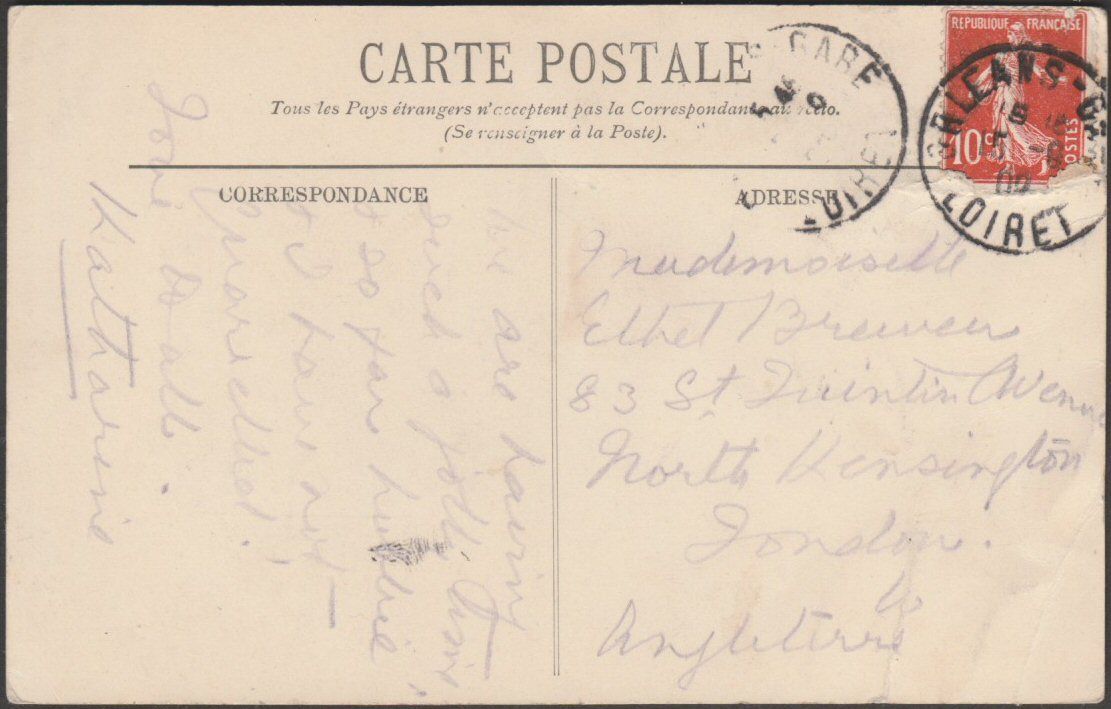 CARTE POSTALE
Tous les Pays étrangers n'acceptent pas la Correspondance au recto.
(Se renseigner à la Poste).
CORRESPONDANCE
ADRESSE
GARE
LOIRET
REPUBLIQUE FRANÇAISE
10c
POSTES
ORLEANS-GARE
LOIRET
we are having
such a jolly time
& so far Louie
& I have not
quarrelled!
Love to all
Katharine
Mademoiselle
Ethel Brewer
83 St Quintin Avenue
North Kensington
London.
Angleterre